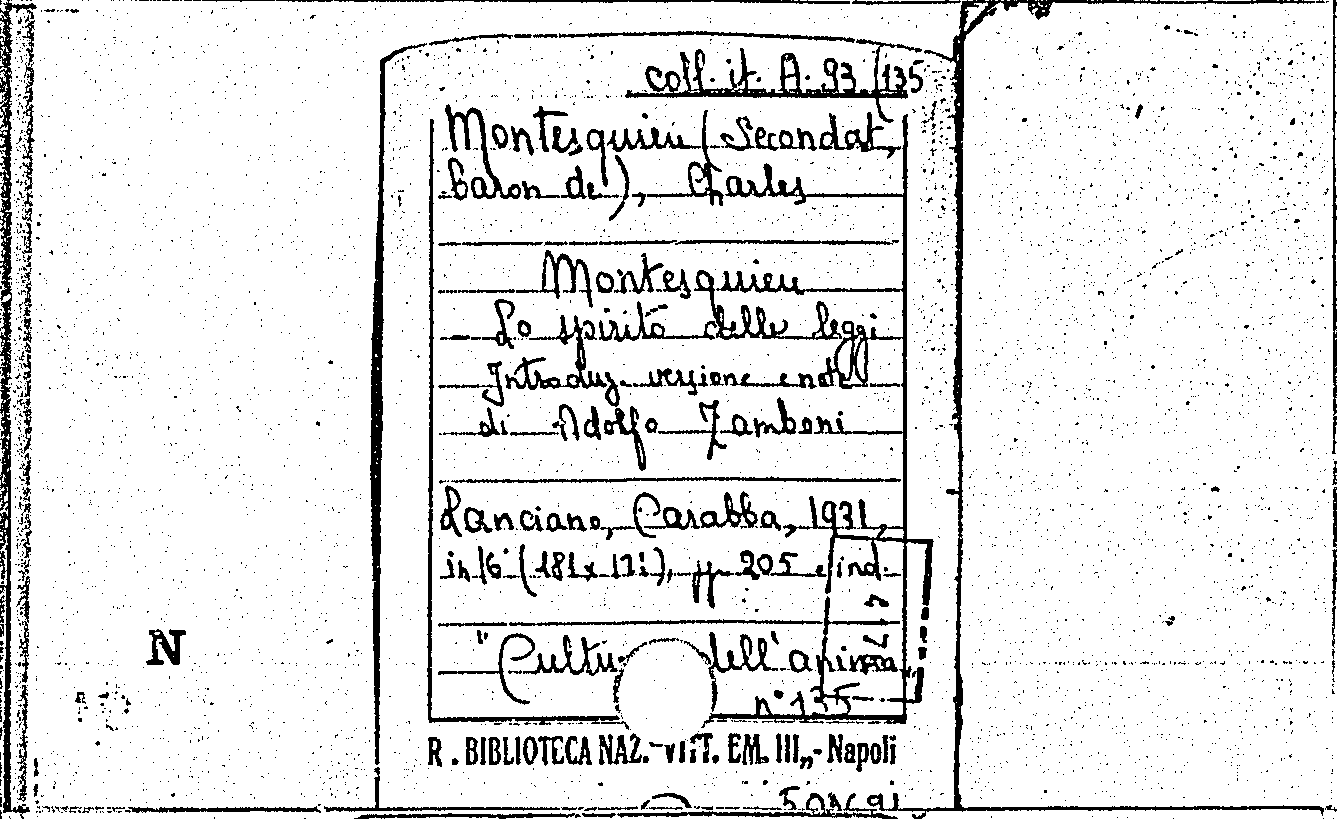 coll. it. A. 93 (135
Montesquieu (Secondat,
baron de), Charles
Montesquieu
Lo spirito delle leggi
Introduz. versione e note
di Adolfo Zamboni
Lanciano, Carabba, 1931,
in 16° (181x 111), pp. 205 e ind.
" Cultu dell'anima "
n° 135
N
R. BIBLIOTECA NAZ. "VITT. EM. III„ - Napoli